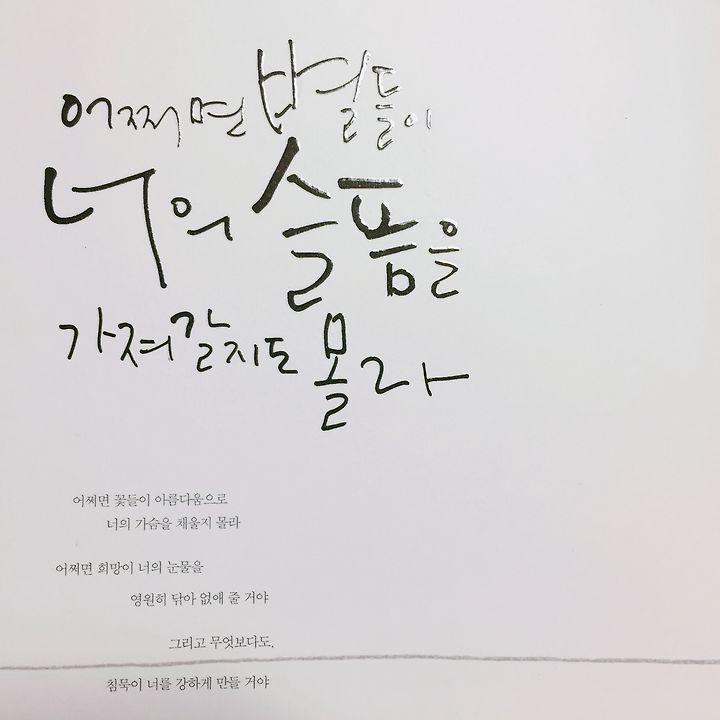 어쩌면 별들이
너의 슬픔을
가져갈지도 몰라
어쩌면 꽃들이 아름다움으로
너의 가슴을 채울지 몰라
어쩌면 희망이 너의 눈물을
영원히 닦아 없애 줄 거야
그리고 무엇보다도,
침묵이 너를 강하게 만들 거야